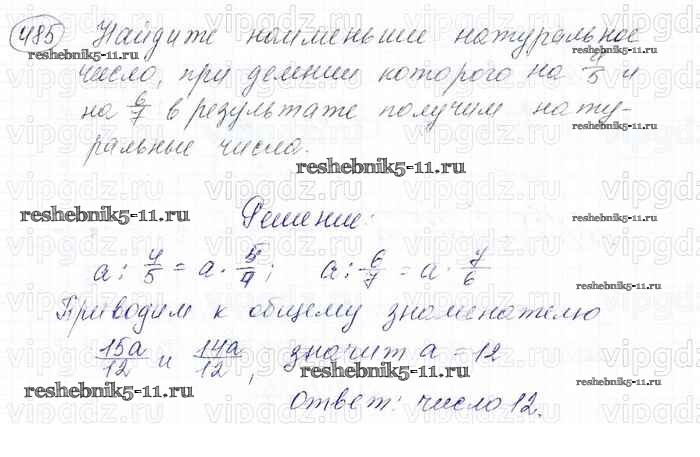 485 Найдите наименьшее натуральное
число, при делении которого на 4/5 и
на 6/7 в результате получим нату-
ральные числа.
Решение:
a : 4/5 = a · 5/4; a : 6/7 = a · 7/6
Приводим к общему знаменателю
15a/12 и 14a/12, значит a = 12
ответ: число 12.
reshebnik5-11.ru
reshebnik5-11.ru
reshebnik5-11.ru
reshebnik5-11.ru
reshebnik5-11.ru
reshebnik5-11.ru
reshebnik5-11.ru
reshebnik5-11.ru
reshebnik5-11.ru
vipgdz.ru